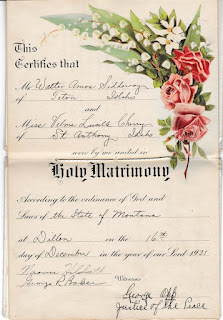 This
Certifies that
Mr Walter Amos
of Teton Idaho
and
Miss Velma
of St. Anthony Idaho
were by me united in
Holy Matrimony
According to the ordinance of God and
Laws of the State of Montana
at Dillon on the 16th
day of December in the year of our Lord 1921
Witness
George
George Opp
Justice of the Peace